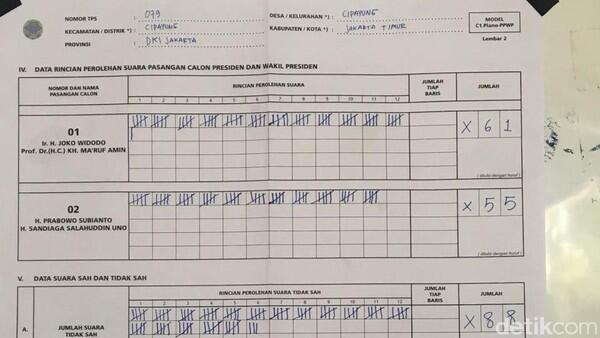 NOMOR TPS : 079
KECAMATAN / DISTRIK *) : CIPAYUNG
PROVINSI : DKI JAKARTA
DESA / KELURAHAN *) : CIPAYUNG
KABUPATEN / KOTA *) : JAKARTA TIMUR
MODEL
C1.Plano-PPWP
Lembar 2
IV. DATA RINCIAN PEROLEHAN SUARA PASANGAN CALON PRESIDEN DAN WAKIL PRESIDEN
NOMOR DAN NAMA
PASANGAN CALON
RINCIAN PEROLEHAN SUARA
1 2 3 4 5 6 7 8 9 10 11 12
JUMLAH
TIAP
BARIS
JUMLAH
01
Ir. H. JOKO WIDODO
Prof. Dr.(H.C.) KH. MA'RUF AMIN
X 6 1
(ditulis dengan huruf)
02
H. PRABOWO SUBIANTO
H. SANDIAGA SALAHUDDIN UNO
X 5 5
(ditulis dengan huruf)
V. DATA SUARA SAH DAN TIDAK SAH
RINCIAN PEROLEHAN SUARA TIDAK SAH
1 2 3 4 5 6 7 8 9 10 11 12
JUMLAH
TIAP
BARIS
JUMLAH
A. JUMLAH SUARA
TIDAK SAH
X 8 8
detikcom